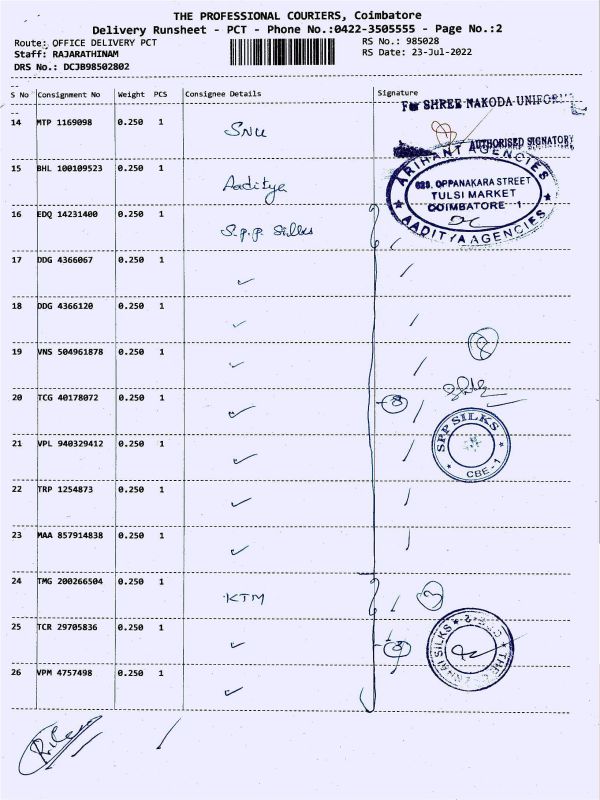 THE PROFESSIONAL COURIERS, Coimbatore
Delivery Runsheet - PCT - Phone No.:0422-3505555 - Page No.:2
Route: OFFICE DELIVERY PCT
RS No.: 985028
Staff: RAJARATHINAM
RS Date: 23-Jul-2022
DRS No.: DCJB98502802
S No Consignment No Weight PCS Consignee Details Signature
For SHREE NAKODA UNIFORM
14 MTP 1169098 0.250 1 SNU
AUTHORISED SIGNATORY
15 BHL 100109523 0.250 1 Aaditya
ARIHANT AGENCIES
OPPANAKARA STREET
TULSI MARKET
COIMBATORE 1
AADITYA AGENCIES
16 EDQ 14231400 0.250 1 S.p.p. Silks
17 DDG 4366067 0.250 1 ✓
18 DDG 4366120 0.250 1 ✓
19 VNS 504961878 0.250 1 ✓
8
20 TCG 40178072 0.250 1 ✓
8
SPP SILKS
CBE - 1
21 VPL 940329412 0.250 1 ✓
22 TRP 1254873 0.250 1 ✓
23 MAA 857914838 0.250 1 ✓
24 TMG 200266504 0.250 1 KTM
25 TCR 29705836 0.250 1 ✓
THE CHENNAI SILKS
26 VPM 4757498 0.250 1 ✓